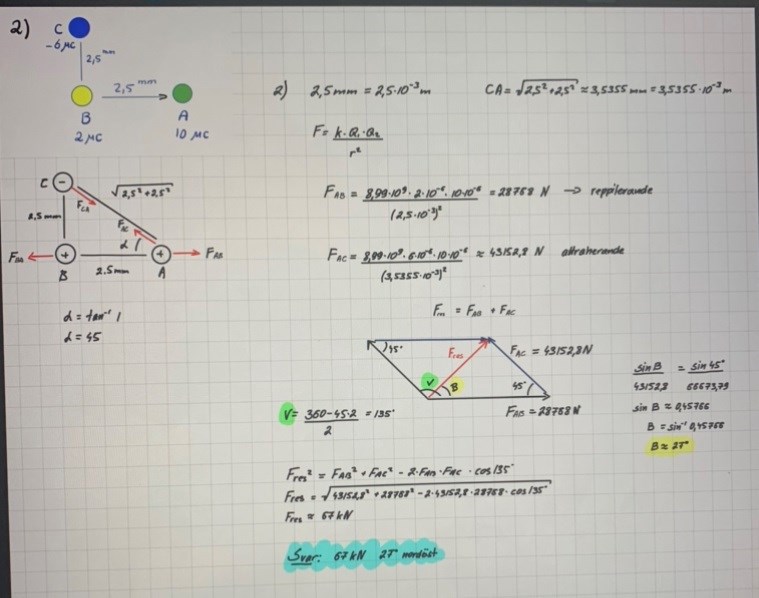 2)
C
-6 µC
2,5 mm
2,5 mm
B
A
2 µC
10 µC
C
√2,5² + 2,5²
F_CA
2,5 mm
F_AC
α
F_BA
F_AB
B
2.5mm
A
α = tan⁻¹ 1
α = 45
2) 2,5mm = 2,5·10⁻³ m
CA = √2,5² + 2,5² ≈ 3,5355 mm = 3,5355·10⁻³ m
F = k·Q₁·Q₂ / r²
F_AB = 8,99·10⁹ · 2·10⁻⁶ · 10·10⁻⁶ / (2,5·10⁻³)² = 28768 N → reppilerande
F_AC = 8,99·10⁹ · 6·10⁻⁶ · 10·10⁻⁶ / (3,5355·10⁻³)² ≈ 43152,8 N attraherande
= F_AB + F_AC
45°
F_res
F_AC = 43152,8N
V
B
45°
F_AB = 28768 N
V = 360-45·2 / 2 = 135°
sin B / 43152,8 = sin 45° / 66673,79
sin B ≈ 0,45766
B = sin⁻¹ 0,45766
B ≈ 27°
F_res² = F_AB² + F_AC² - 2·F_AB·F_AC · cos 135°
F_res = √43152,8² + 28768² - 2·43152,8·28768·cos 135°
F_res ≈ 67 kN
Svar: 67 kN 27° nordöst